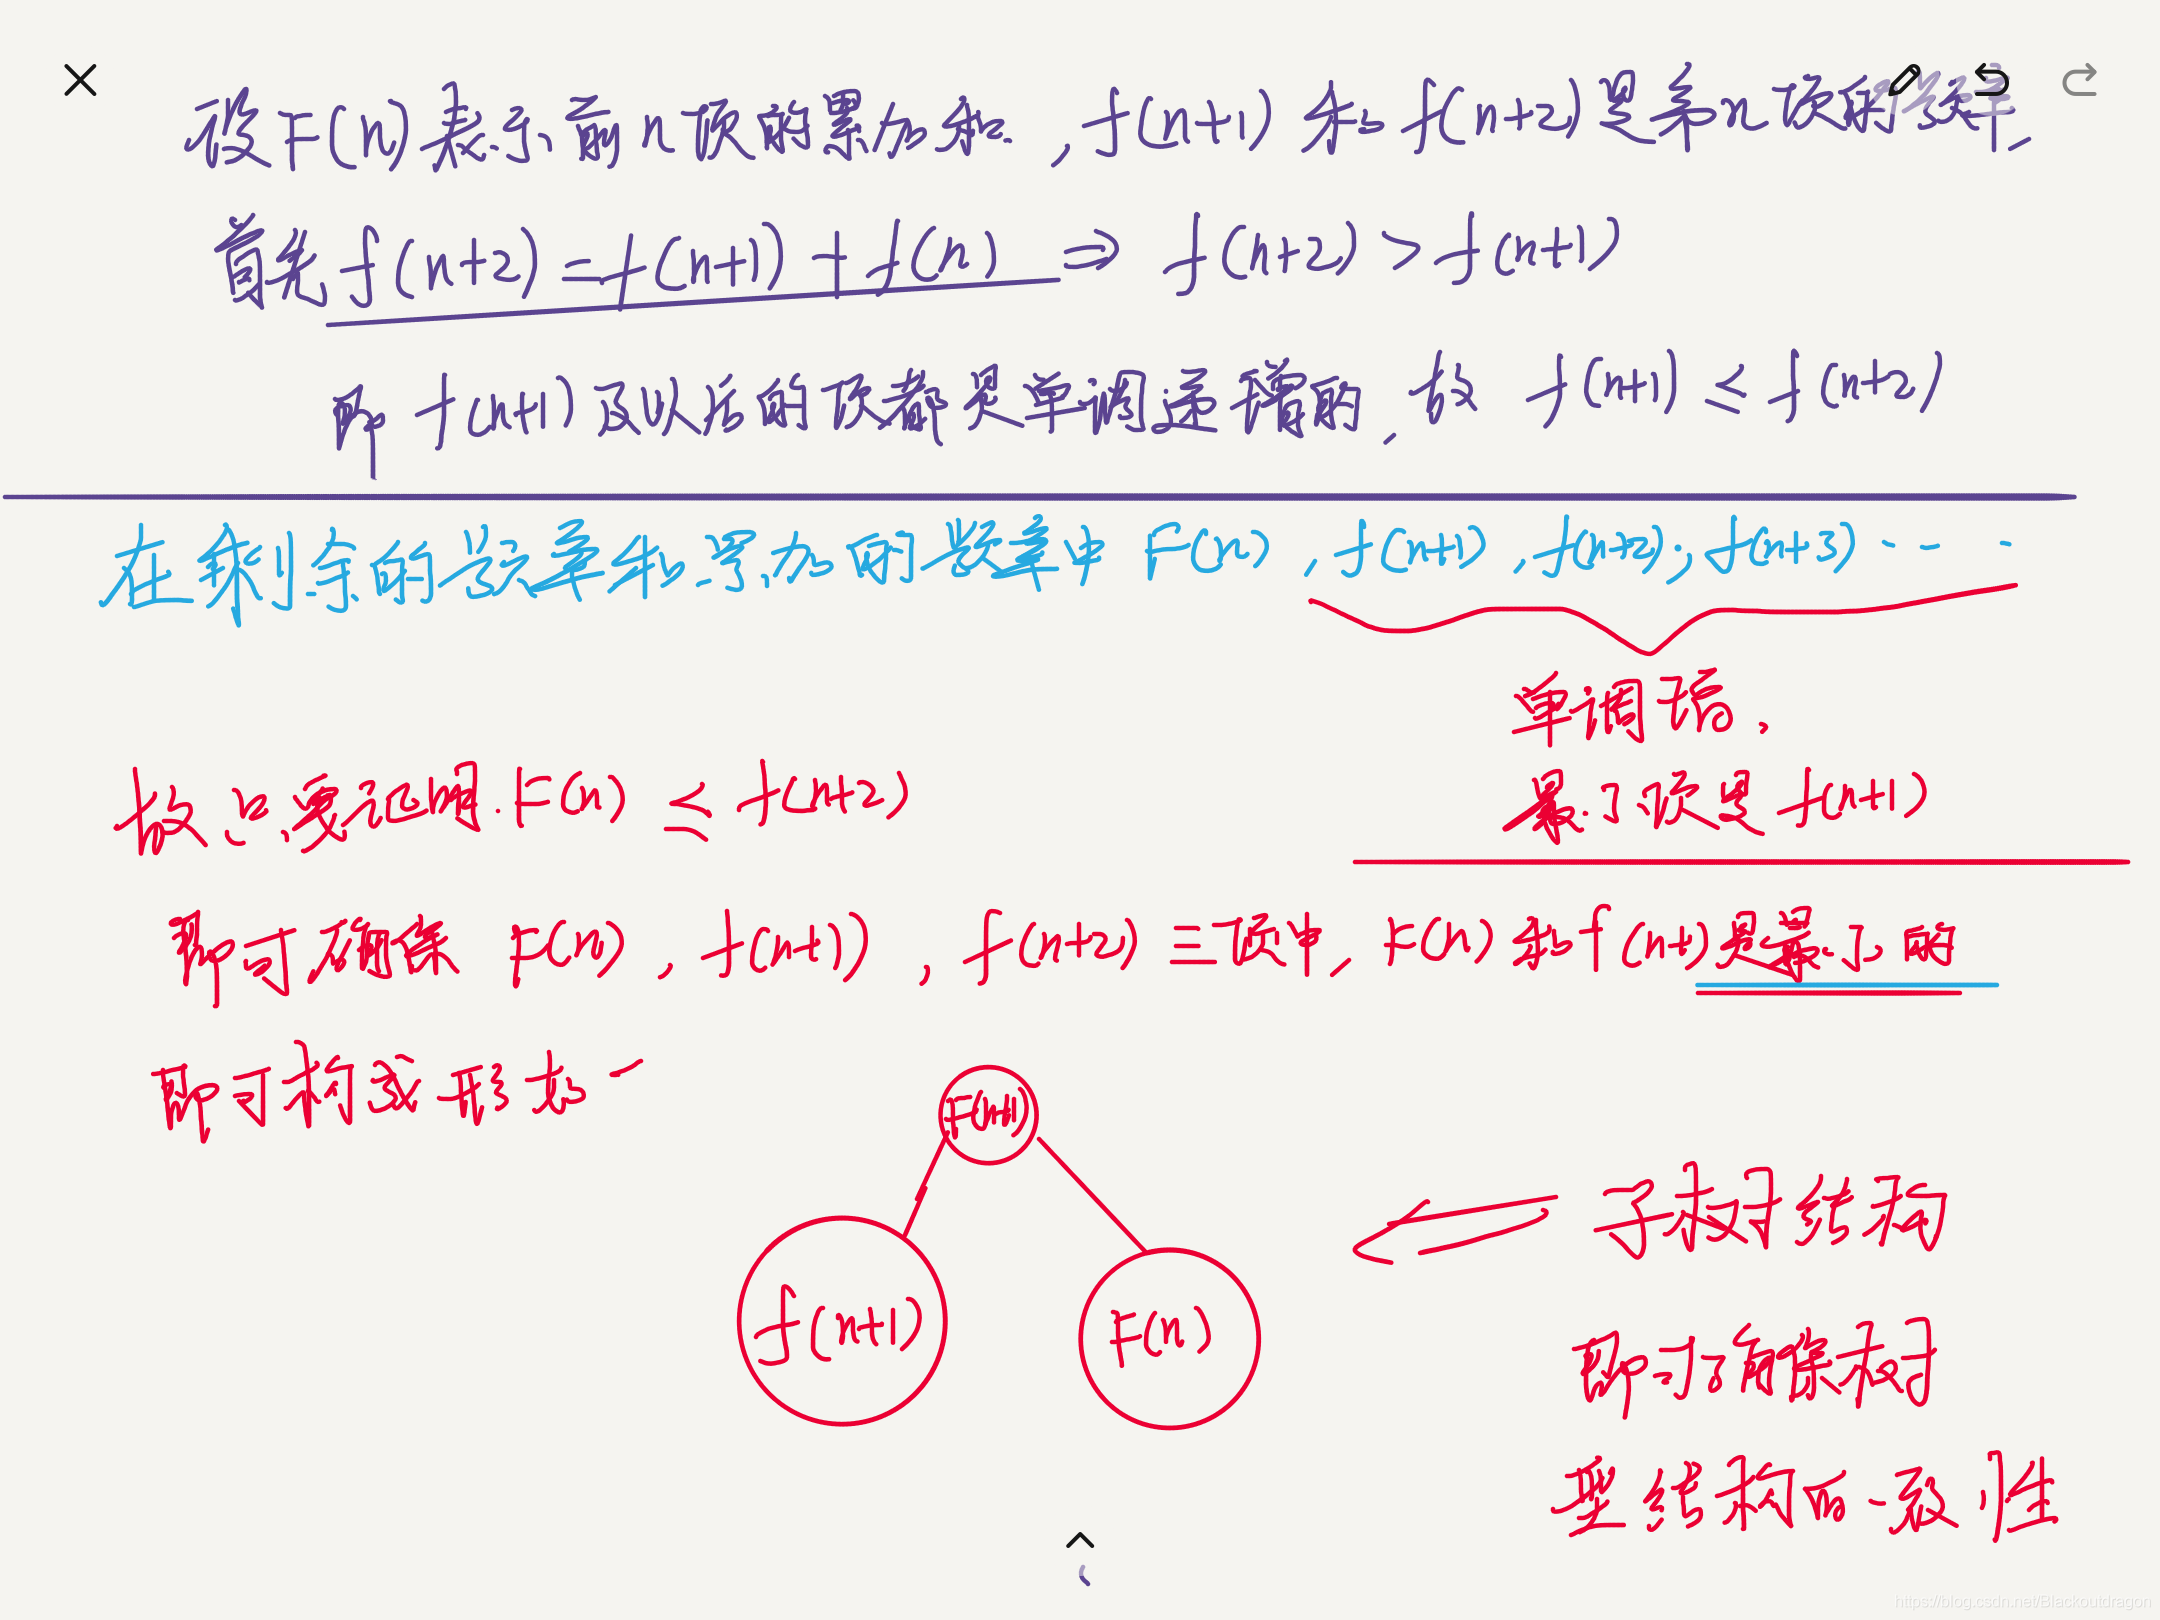 设F(n)表示前n项的累加和,f(n+1)和f(n+2)是第n项的效率,
首先f(n+2)=f(n+1)+f(n) ⇒ f(n+2)>f(n+1)
即f(n+1)及以后的项都是单调递增的,故 f(n+1)≤f(n+2)
在剩余的效率和累加的频率中 F(n),f(n+1),f(n+2),f(n+3)……
单调增,
最小项是f(n+1)
故只要证明.F(n)≤f(n+2)
即可确保 F(n),f(n+1),f(n+2)三项中,F(n)和f(n+1)是最小的
即可构成形为一
F(n+1)
f(n+1)
F(n)
子树结构
即可确保树
型结构的一致性
https://blog.csdn.net/Blackoutdragon